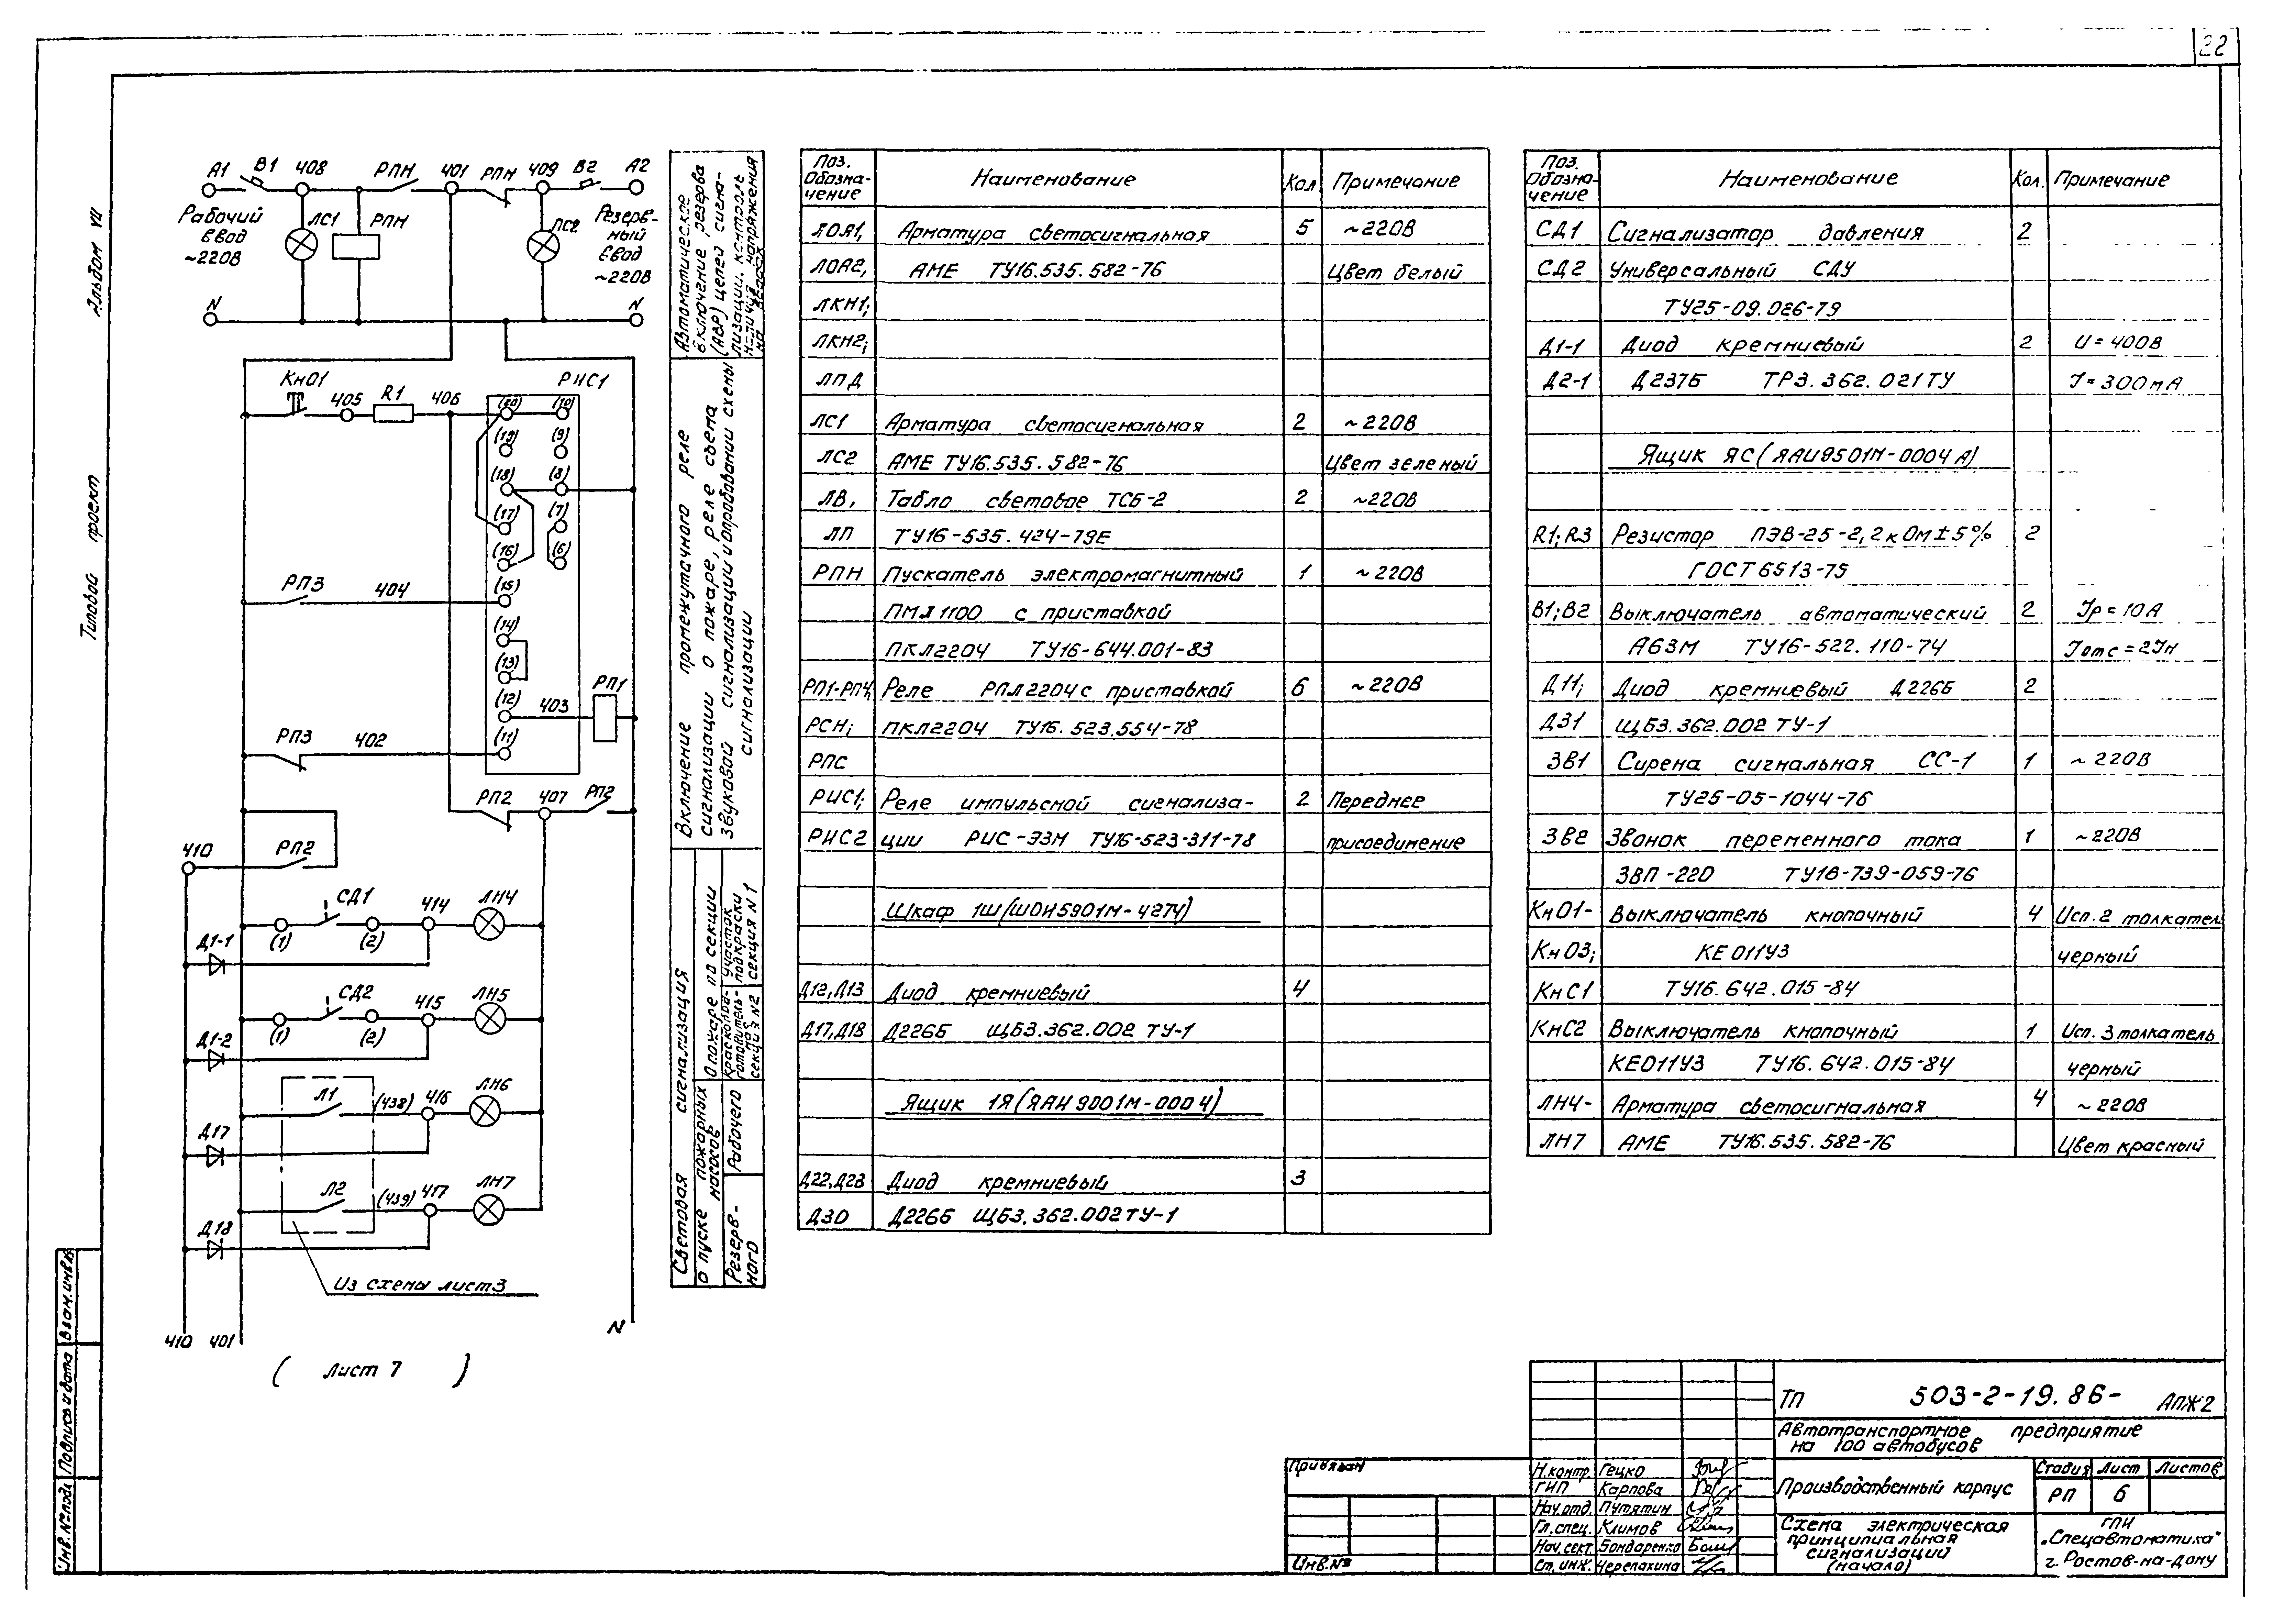 22
Альбом VII
Типовой проект
А1 В1 408 РПН 401 РПН 409 В2 А2
Рабочий ввод ~220В
ЛС1 РПН ЛС2
Резервный ввод ~220В
N N
КнО1 405 R1 406 РИС1
(20) (10)
(19) (9)
(18) (8)
(17) (7)
(16) (6)
РП3 404 (15)
(14)
(13)
(12) 403 РП1
РП3 402 (11)
РП2 407 РП2
410 РП2
СД1 414 ЛН4
(1) (2)
Д1-1
СД2 415 ЛН5
(1) (2)
Д1-2
Л1 (438) 416 ЛН6
Д17
Л2 (439) 417 ЛН7
Д18
Из схемы лист3
410 401 N
( Лист 7 )
Автоматическое
включение резерва
(АВР) цепей сигна-
лизации, контроль
наличия напряжения
на вводах
Включение промежуточного реле
сигнализации о пожаре, реле съема
звуковой сигнализации и опробовании схемы
сигнализации
Световая сигнализация
О пожаре по секции
Участок подкраски секция N1
Краскоприготовительная секция N2
О пуске пожарных насосов
Рабочего
Резервного
Поз. Обозначение Наименование Кол. Примечание
ЛОА1, Арматура светосигнальная 5 ~220В
ЛОА2, АМЕ ТУ16.535.582-76 Цвет белый
ЛКН1;
ЛКН2;
ЛПД
ЛС1 Арматура светосигнальная 2 ~220В
ЛС2 АМЕ ТУ16.535.582-76 Цвет зеленый
ЛВ, Табло световое ТСБ-2 2 ~220В
ЛП ТУ16-535.424-79Е
РПН Пускатель электромагнитный 1 ~220В
ПМЛ1100 с приставкой
ПКЛ2204 ТУ16-644.001-83
РП1-РП4, Реле РПЛ2204 с приставкой 6 ~220В
РСН; ПКЛ2204 ТУ16.523.554-78
РПС
РИС1; Реле импульсной сигнализа- 2 Переднее
РИС2 ции РИС-Э3М ТУ16-523-311-78 присоединение
Шкаф 1Ш(ШОН5901М-4274)
Д12,Д13 Диод кремниевый 4
Д17,Д18 Д226Б ЩБ3.362.002 ТУ-1
Ящик 1Я(ЯАИ9001М-0004)
Д22,Д23 Диод кремниевый 3
Д30 Д226Б ЩБ3.362.002ТУ-1
Поз. Обозначение Наименование Кол. Примечание
СД1 Сигнализатор давления 2
СД2 Универсальный СДУ
ТУ25-09.026-79
Д1-1 Диод кремниевый 2 U=400В
Д2-1 Д237Б ТР3.362.021ТУ J=300мА
Ящик ЯС(ЯАИ9501М-0004А)
R1;R3 Резистор ПЭВ-25-2,2кОм±5% 2
ГОСТ6513-75
В1;В2 Выключатель автоматический 2 Jр=10А
А63М ТУ16-522.110-74 Jотс=2Jн
Д11; Диод кремниевый Д226Б 2
Д31 ЩБ3.362.002 ТУ-1
ЗВ1 Сирена сигнальная СС-1 1 ~220В
ТУ25-05-1044-76
ЗВ2 Звонок переменного тока 1 ~220В
ЗВП-220 ТУ16-739-059-76
КнО1- Выключатель кнопочный 4 Исп.2 толкател
КнО3; КЕ011У3 черный
КнС1 ТУ16.642.015-84
КнС2 Выключатель кнопочный 1 Исп.3толкатель
КЕ011У3 ТУ16.642.015-84 черный
ЛН4- Арматура светосигнальная 4 ~220В
ЛН7 АМЕ ТУ16.535.582-76 Цвет красный
ТП 503-2-19.86- АПЖ2
Автотранспортное предприятие
на 100 автобусов
Привязан
Инв.№
Н.контр. Гецко
ГИП Карпова
Нач.отд. Путятин
Гл.спец. Климов
Нач.сект. Бондаренко
Ст.инж. Черепахина
Производственный корпус
Стадия Лист Листов
РП 6
Схема электрическая
принципиальная
сигнализации
(начало)
ГПИ
"Спецавтоматика"
г. Ростов-на-дону
Инв.№подл. Подпись и дата Взам.инв.№